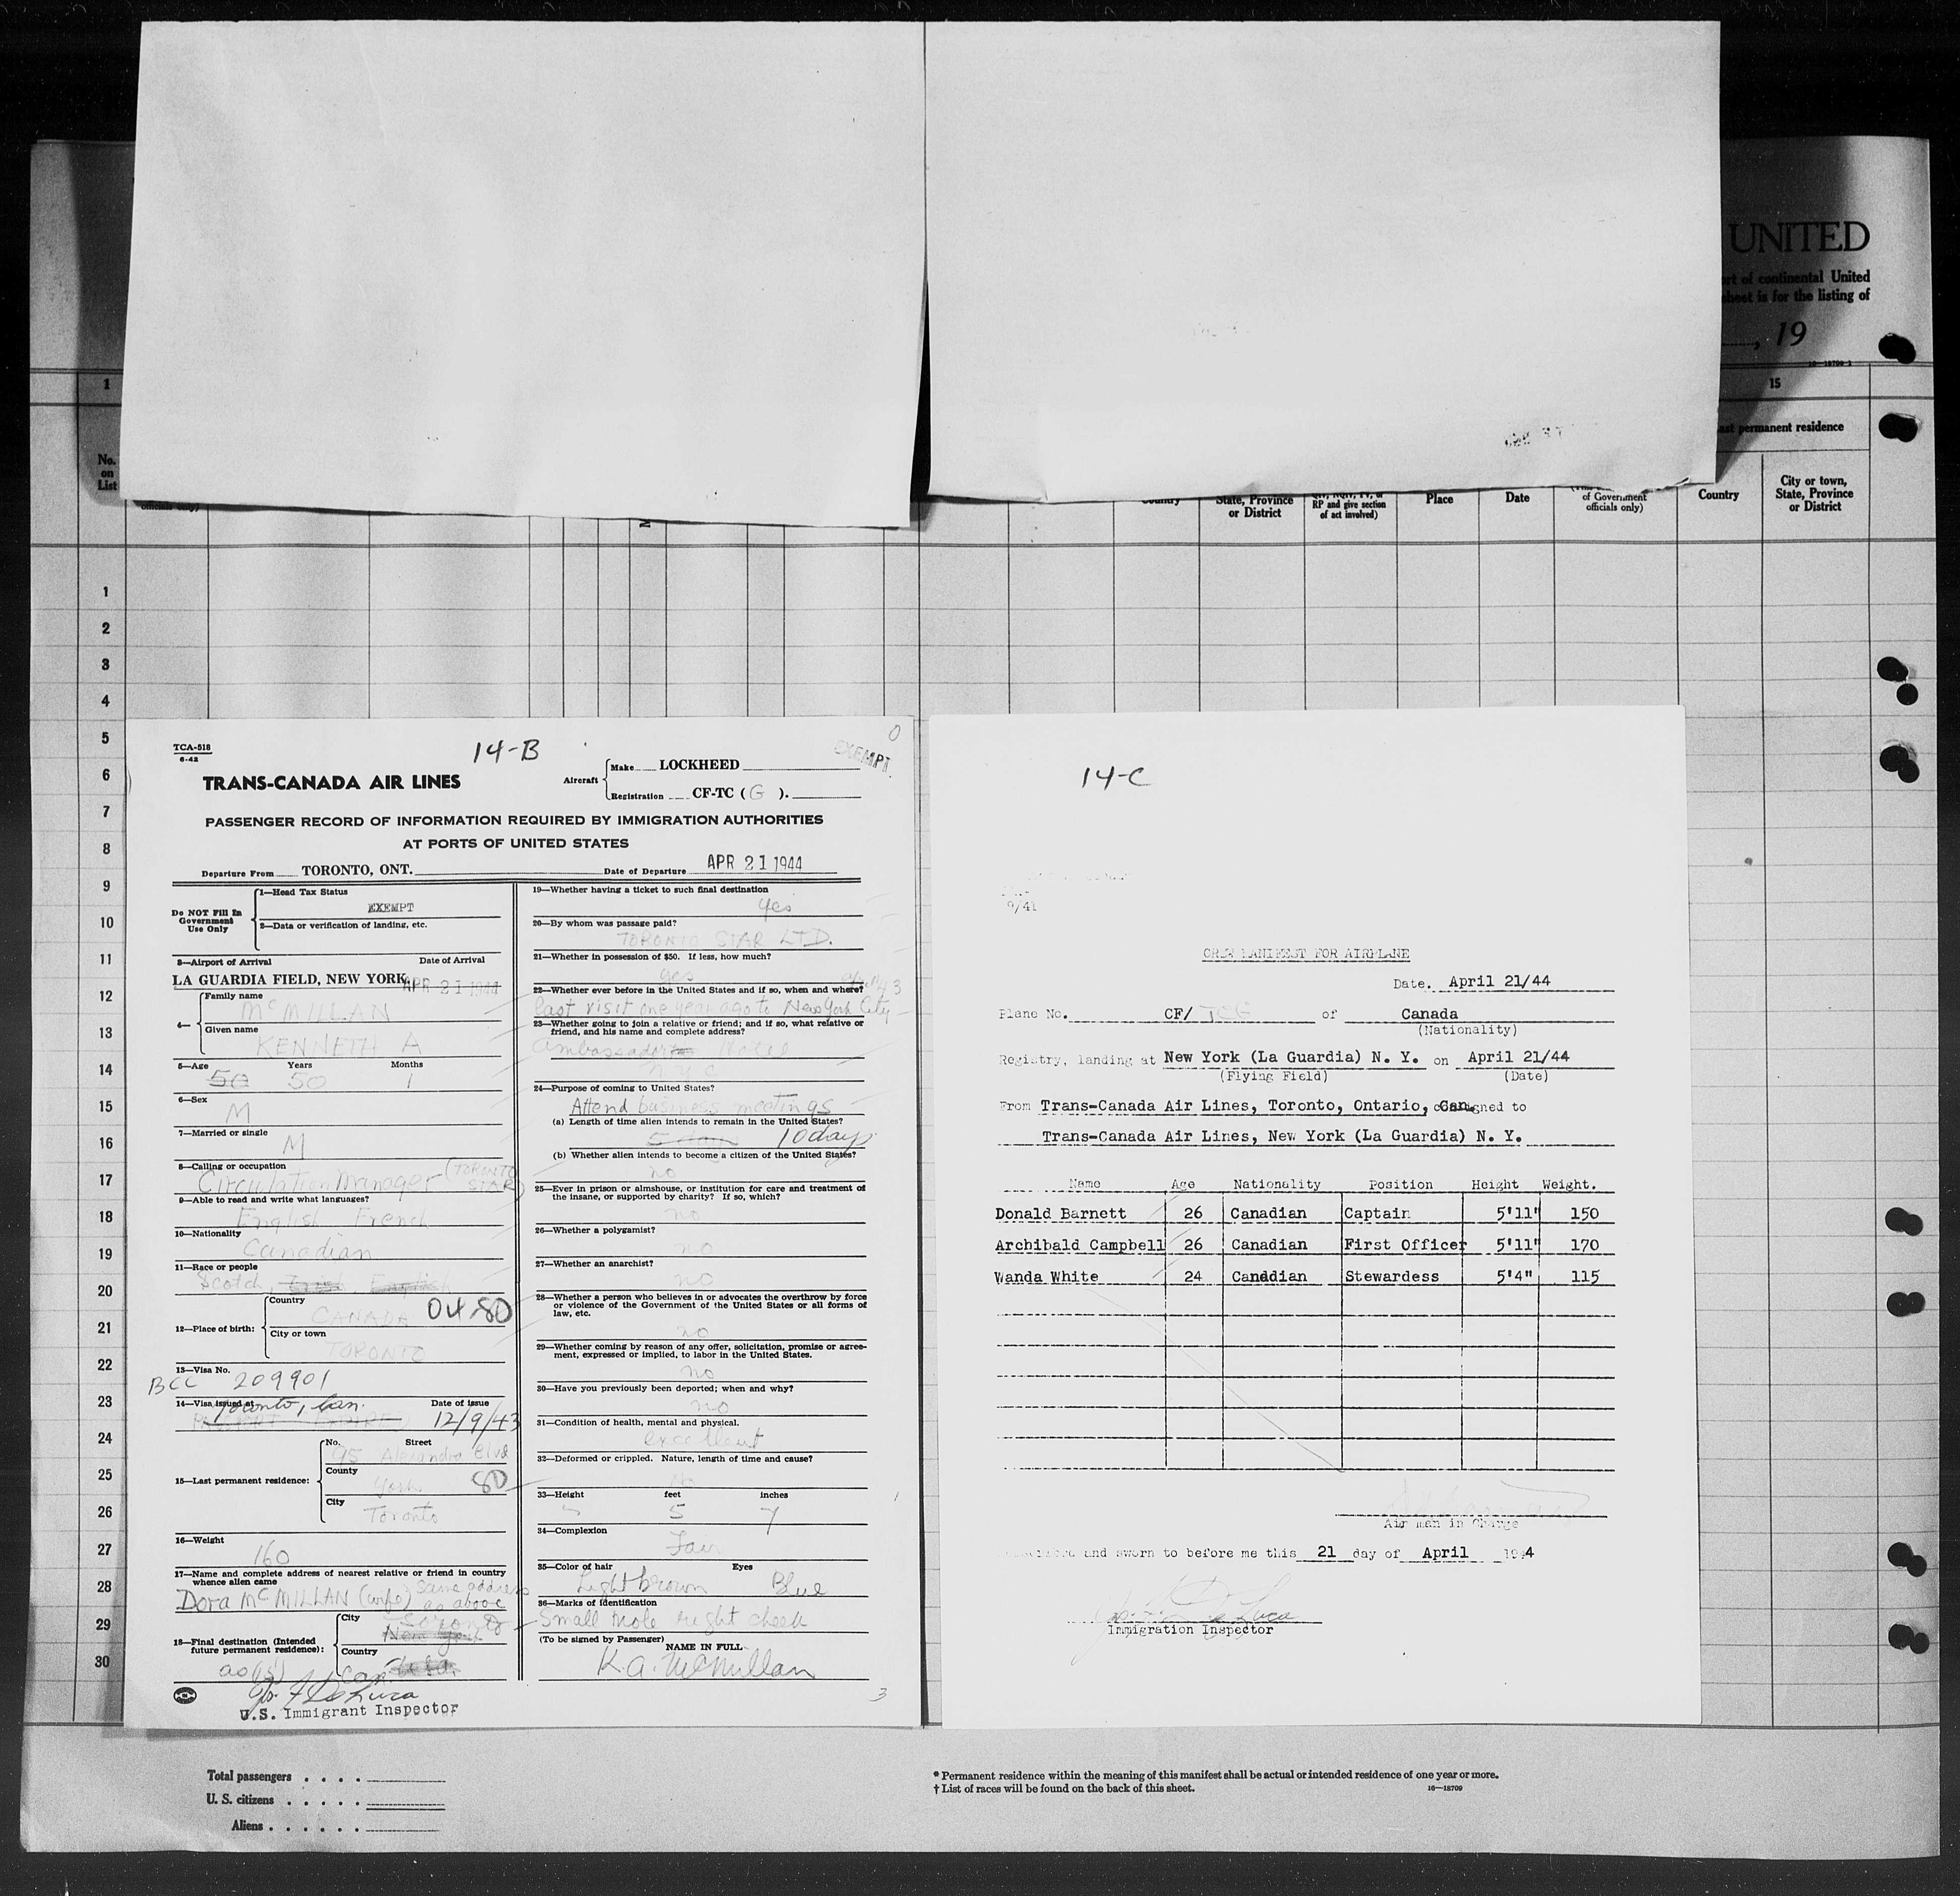 UNITED
ort of continental United
sheet is for the listing of
, 19
16-18709-1
1
15
ast permanent residence
No.
on
List
officials only)
Country
State, Province
or District
RP and give section
of act involved)
Place
Date
of Government
officials only)
Country
City or town,
State, Province
or District
1
2
3
4
5
6
7
8
9
10
11
12
13
14
15
16
17
18
19
20
21
22
23
24
25
26
27
28
29
30
TCA-518
6-42
14-B
0
EXEMPT.
TRANS-CANADA AIR LINES
Aircraft
Make LOCKHEED
Registration CF-TC ( G ).
PASSENGER RECORD OF INFORMATION REQUIRED BY IMMIGRATION AUTHORITIES
AT PORTS OF UNITED STATES
Departure From TORONTO, ONT. Date of Departure APR 21 1944
Do NOT Fill In
Government
Use Only
1—Head Tax Status
EXEMPT
2—Data or verification of landing, etc.
3—Airport of Arrival Date of Arrival
LA GUARDIA FIELD, NEW YORK APR 21 1944
4— Family name
McMILLAN
Given name
KENNETH A
5—Age Years Months
50 50 1
6—Sex
M
7—Married or single
M
8—Calling or occupation
Circulation Manager (TORONTO
STAR)
9—Able to read and write what languages?
English French
10—Nationality
Canadian
11—Race or people
Scotch Irish English
12—Place of birth:
Country
CANADA 04 80
City or town
TORONTO
13—Visa No.
BCC 209901
14—Visa issued at Date of issue
Toronto, Can. 12/9/43
15—Last permanent residence:
No. Street
95 Alexandra Blvd
County
York 80
City
Toronto
16—Weight
160
17—Name and complete address of nearest relative or friend in country
whence alien came
Dora McMILLAN (wife) same address
as above
18—Final destination (Intended
future permanent residence):
City
Toronto
New York
Country
as (15) Can. U.S.A.
Jos. F. De Luca
U.S. Immigrant Inspector
19—Whether having a ticket to such final destination
yes
20—By whom was passage paid?
TORONTO STAR LTD.
21—Whether in possession of $50. If less, how much?
yes
22—Whether ever before in the United States and if so, when and where?
last visit one year ago to New York City
23—Whether going to join a relative or friend; and if so, what relative or
friend, and his name and complete address?
Ambassador Hotel
N Y C
24—Purpose of coming to United States?
Attend business meetings
(a) Length of time alien intends to remain in the United States?
5 days 10 days
(b) Whether alien intends to become a citizen of the United States?
no
25—Ever in prison or almshouse, or institution for care and treatment of
the insane, or supported by charity? If so, which?
no
26—Whether a polygamist?
no
27—Whether an anarchist?
no
28—Whether a person who believes in or advocates the overthrow by force
or violence of the Government of the United States or all forms of
law, etc.
no
29—Whether coming by reason of any offer, solicitation, promise or agree-
ment, expressed or implied, to labor in the United States.
no
30—Have you previously been deported; when and why?
no
31—Condition of health, mental and physical.
excellent
32—Deformed or crippled. Nature, length of time and cause?
No
33—Height feet inches
5 7
34—Complexion
Fair
35—Color of hair Eyes
Light brown Blue
36—Marks of identification
Small mole right cheek
(To be signed by Passenger)
NAME IN FULL
K. A. McMillan
3
14-C
9/41
CREW MANIFEST FOR AIRPLANE
Date. April 21/44
Plane No. CF/ TCG of Canada
(Nationality)
Registry, landing at New York (La Guardia) N. Y. on April 21/44
(Flying Field) (Date)
From Trans-Canada Air Lines, Toronto, Ontario, Can. consigned to
Trans-Canada Air Lines, New York (La Guardia) N. Y.
Name Age Nationality Position Height Weight.
Donald Barnett 26 Canadian Captain 5'11" 150
Archibald Campbell 26 Canadian First Officer 5'11" 170
Wanda White 24 Canadian Stewardess 5'4" 115
Air man in Charge
and sworn to before me this 21 day of April 1944
Jos. F. De Luca
Immigration Inspector
Total passengers . . . .
U. S. citizens . . . . .
Aliens . . . . . .
* Permanent residence within the meaning of this manifest shall be actual or intended residence of one year or more.
† List of races will be found on the back of this sheet.
16—18709